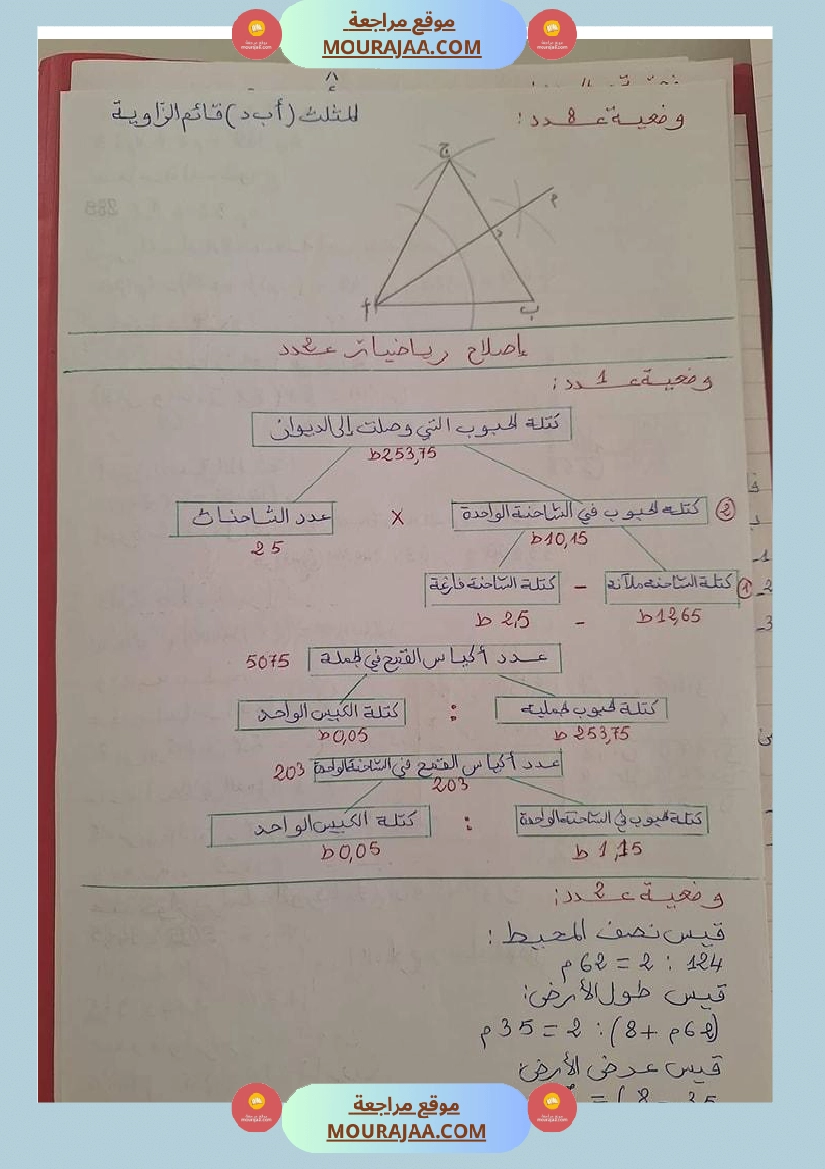 موقع مراجعة
MOURAJAA.COM
وضعية عدد 8:
المثلث (أ ب د) قائم الزاوية
ج
م
د
أ
ب
إصلاح رياضيات عدد 2
وضعية عدد 1:
كتلة الحبوب التي وصلت إلى الديوان
253,75 ط
② كتلة الحبوب في الشاحنة الواحدة × عدد الشاحنات
10,15 ط
25
① كتلة الشاحنة ملآنة - كتلة الشاحنة فارغة
12,65 ط - 2,5 ط
عدد أكياس القمح في الجملة 5075
كتلة الحبوب الجملية : كتلة الكيس الواحد
253,75 ط
0,05 ط
عدد أكياس القمح في الشاحنة الواحدة 203
203
كتلة الحبوب في الشاحنة الواحدة : كتلة الكيس الواحد
1,15 ط
0,05 ط
وضعية عدد 2:
قيس نصف المحيط :
124 : 2 = 62 م
قيس طول الأرض:
(62م + 8) : 2 = 35 م
قيس عرض الأرض:
موقع مراجعة
MOURAJAA.COM